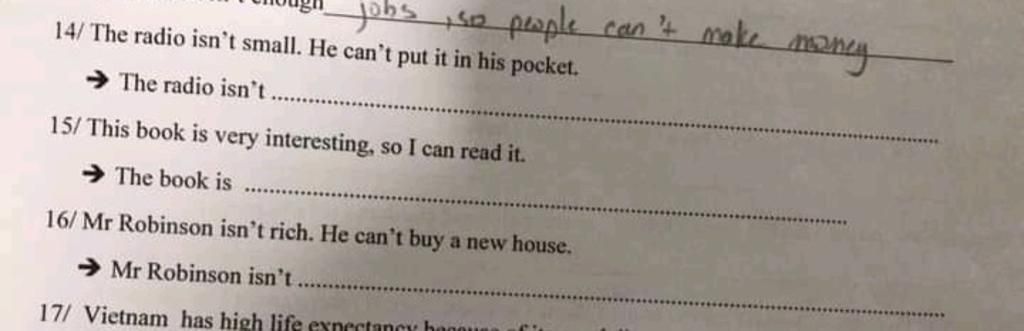 jobs, so people can't make money
14/ The radio isn't small. He can't put it in his pocket.
➔ The radio isn't ........................................
15/ This book is very interesting, so I can read it.
➔ The book is ........................................
16/ Mr Robinson isn't rich. He can't buy a new house.
➔ Mr Robinson isn't ........................................
17/ Vietnam has high life expectancy because of